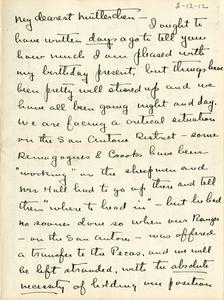 2-12-12
My dearest Mütterchen - I ought to
have written days ago to tell you
how much I am pleased with
my birthday present, but things have
been pretty well stirred up and we
have all been going night and day.
We are facing a critical situation
on the San Antone District - some
Demagogues & Crooks have been
"working" on the sheepmen and
Mr. Hall had to go up then and tell
them "where to head in" - but he had
no sooner done so when our Ranger
- on the San Antone - was offered
a transfer to the Pecos, and we will
be left stranded, with the absolute
necessity of holding our position